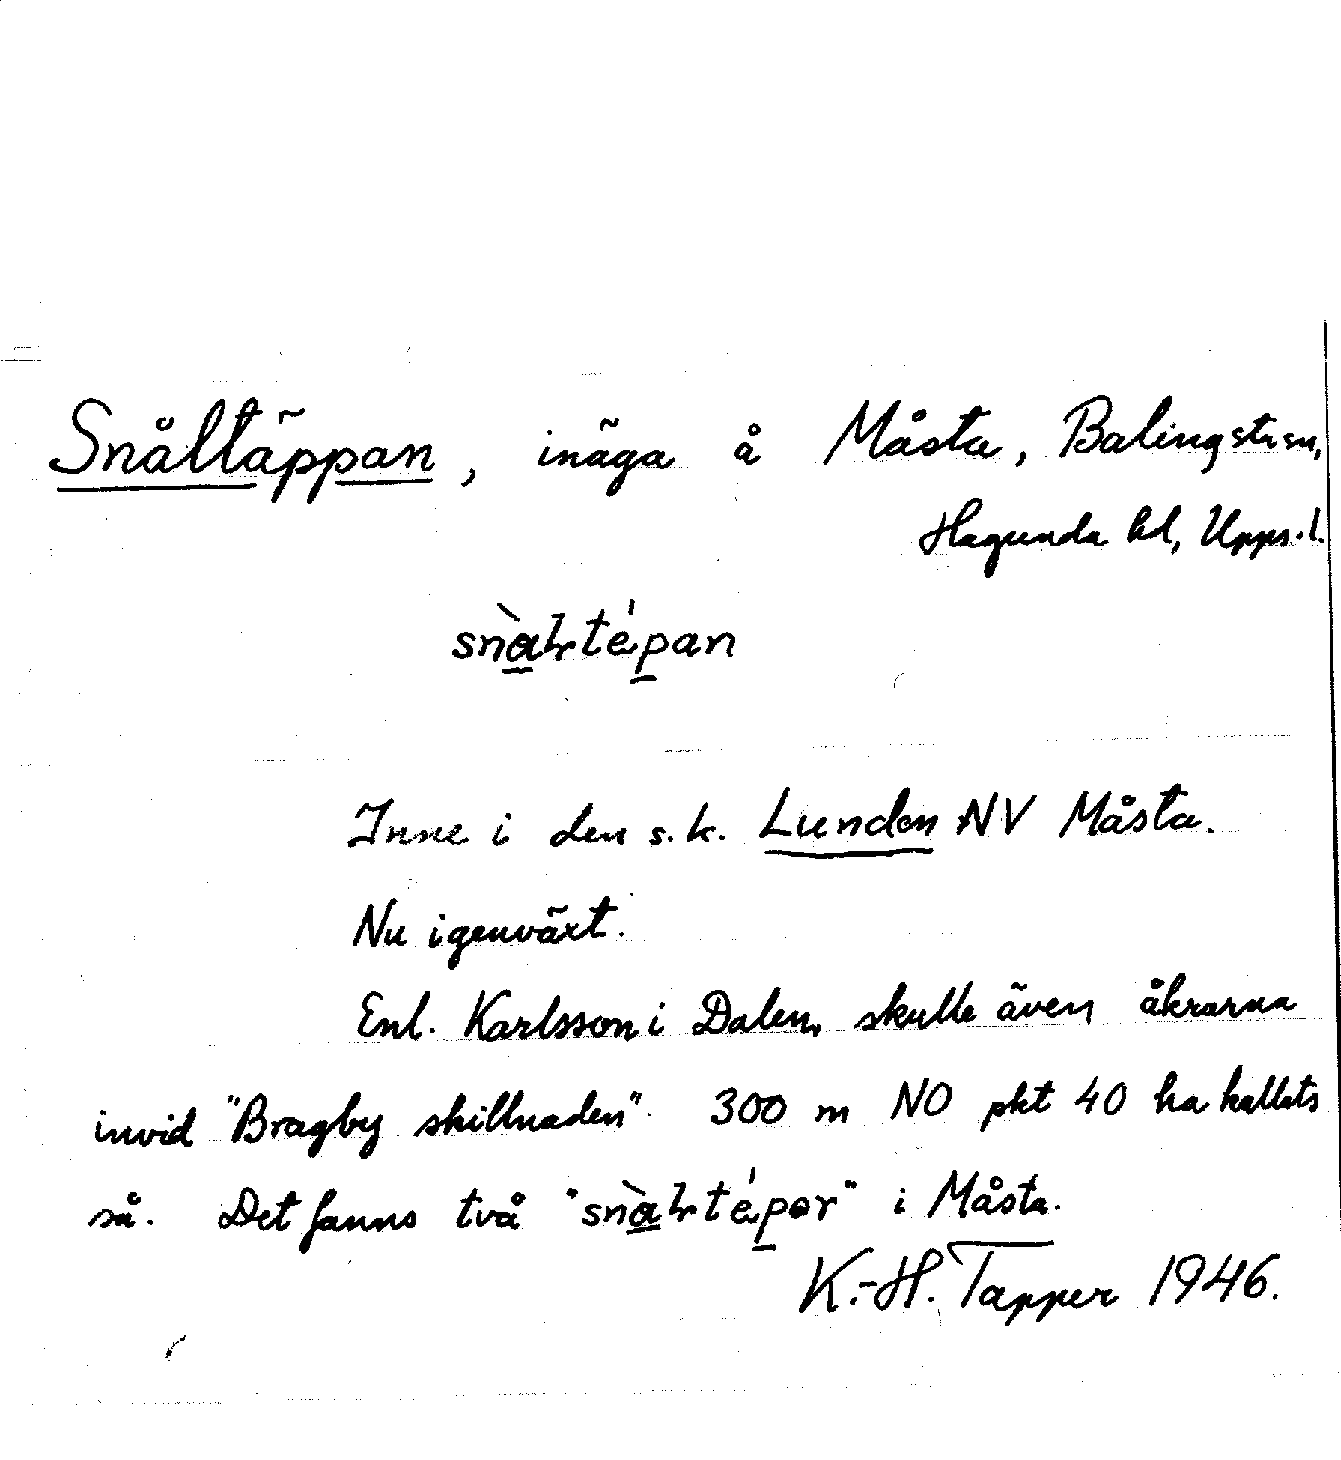 Snåltäppan, inäga å Måsta, Balingsta sn,
Hagunda hd, Upps. l.
Inne i den s.k. Lunden NV Måsta.
Nu igenväxt.
Enl. Karlsson i Dalen, skulle även åkrarna
invid "Bragby skillnaden" 300 m NO pkt 40 ha kallats
så. Det fanns två i Måsta.
K.-H. Tapper 1946.